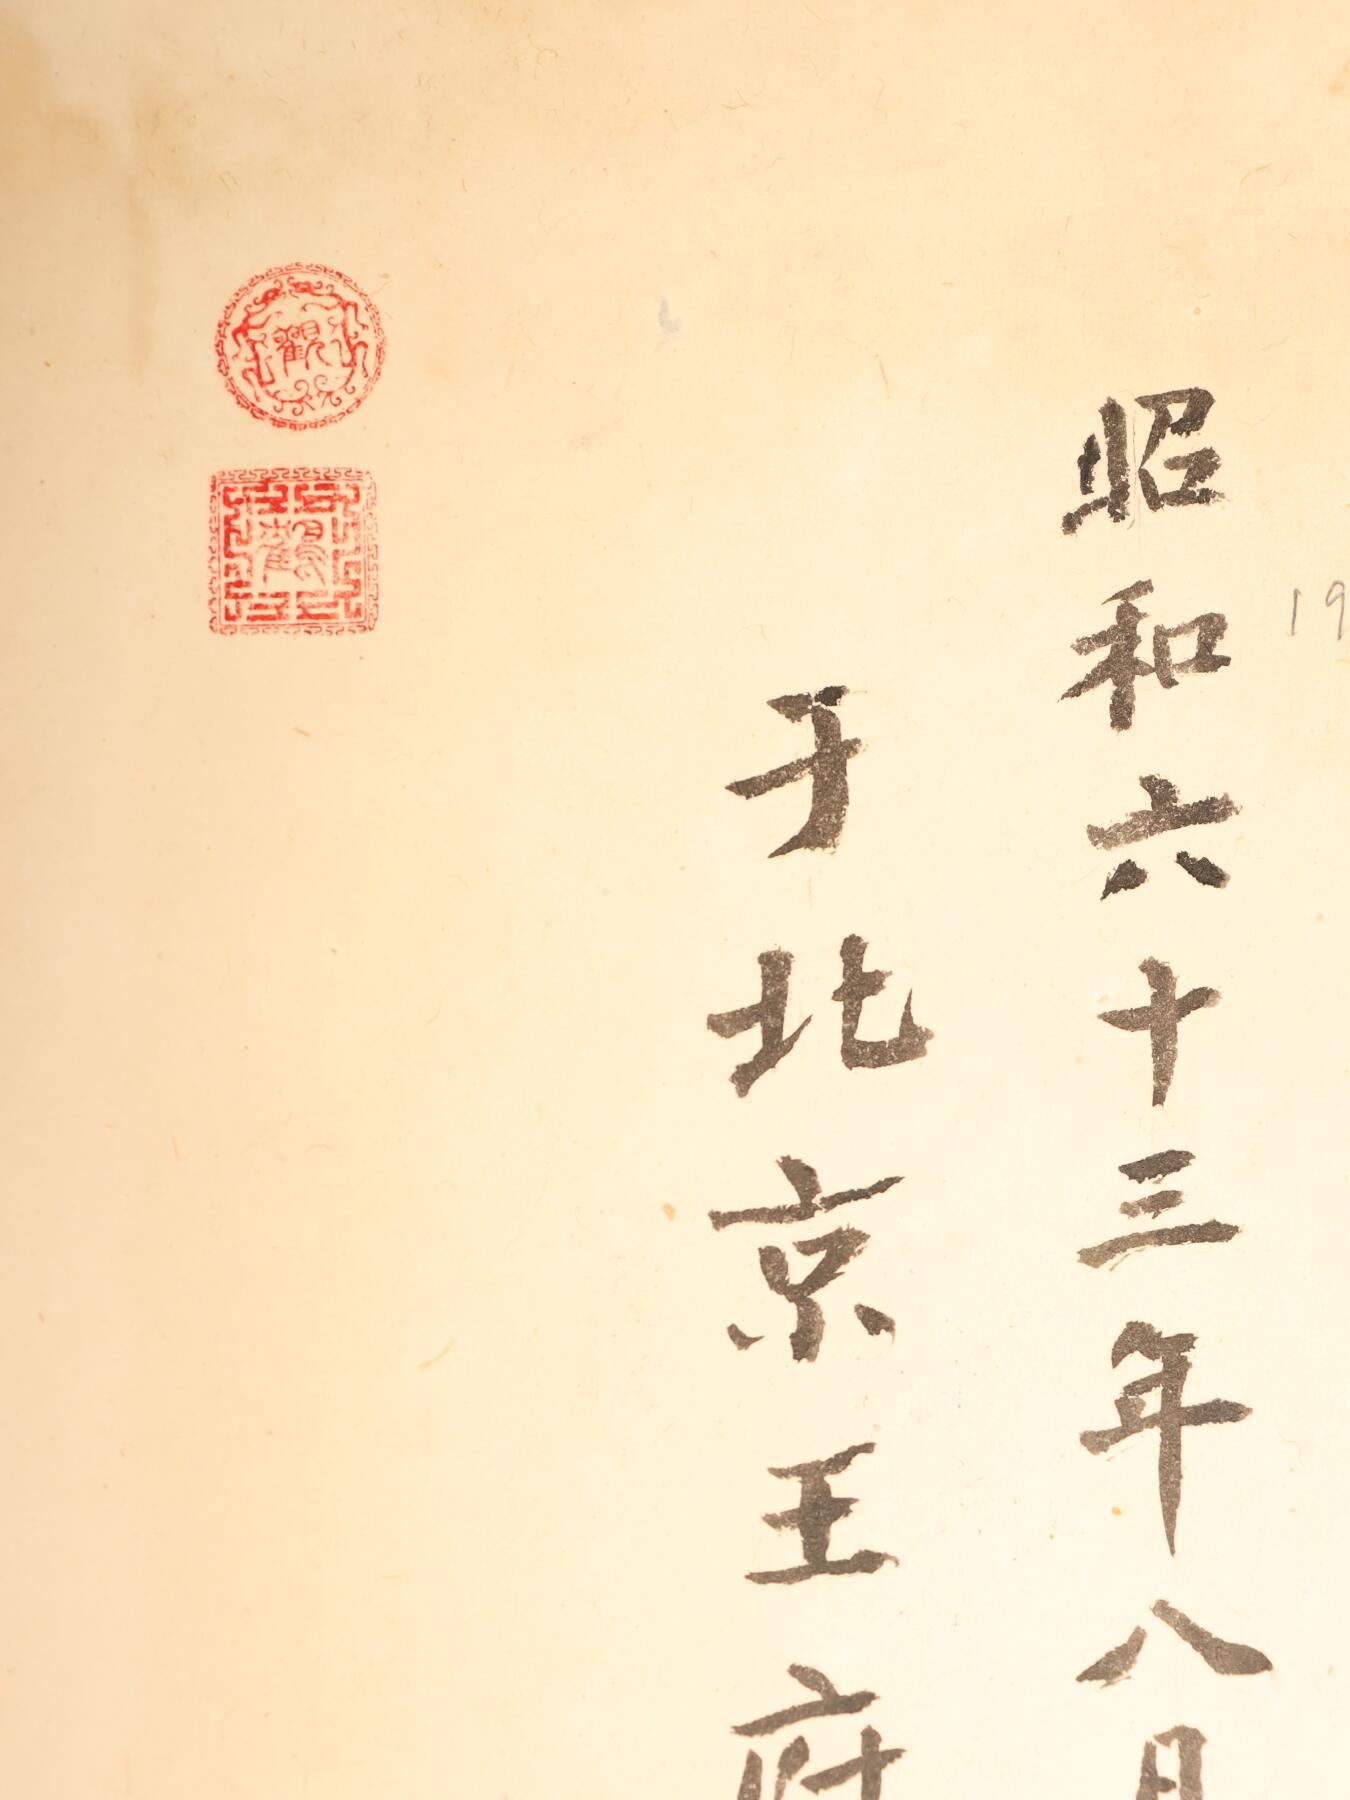 昭和六十三年八月
于北京王府
19
觀
鶴